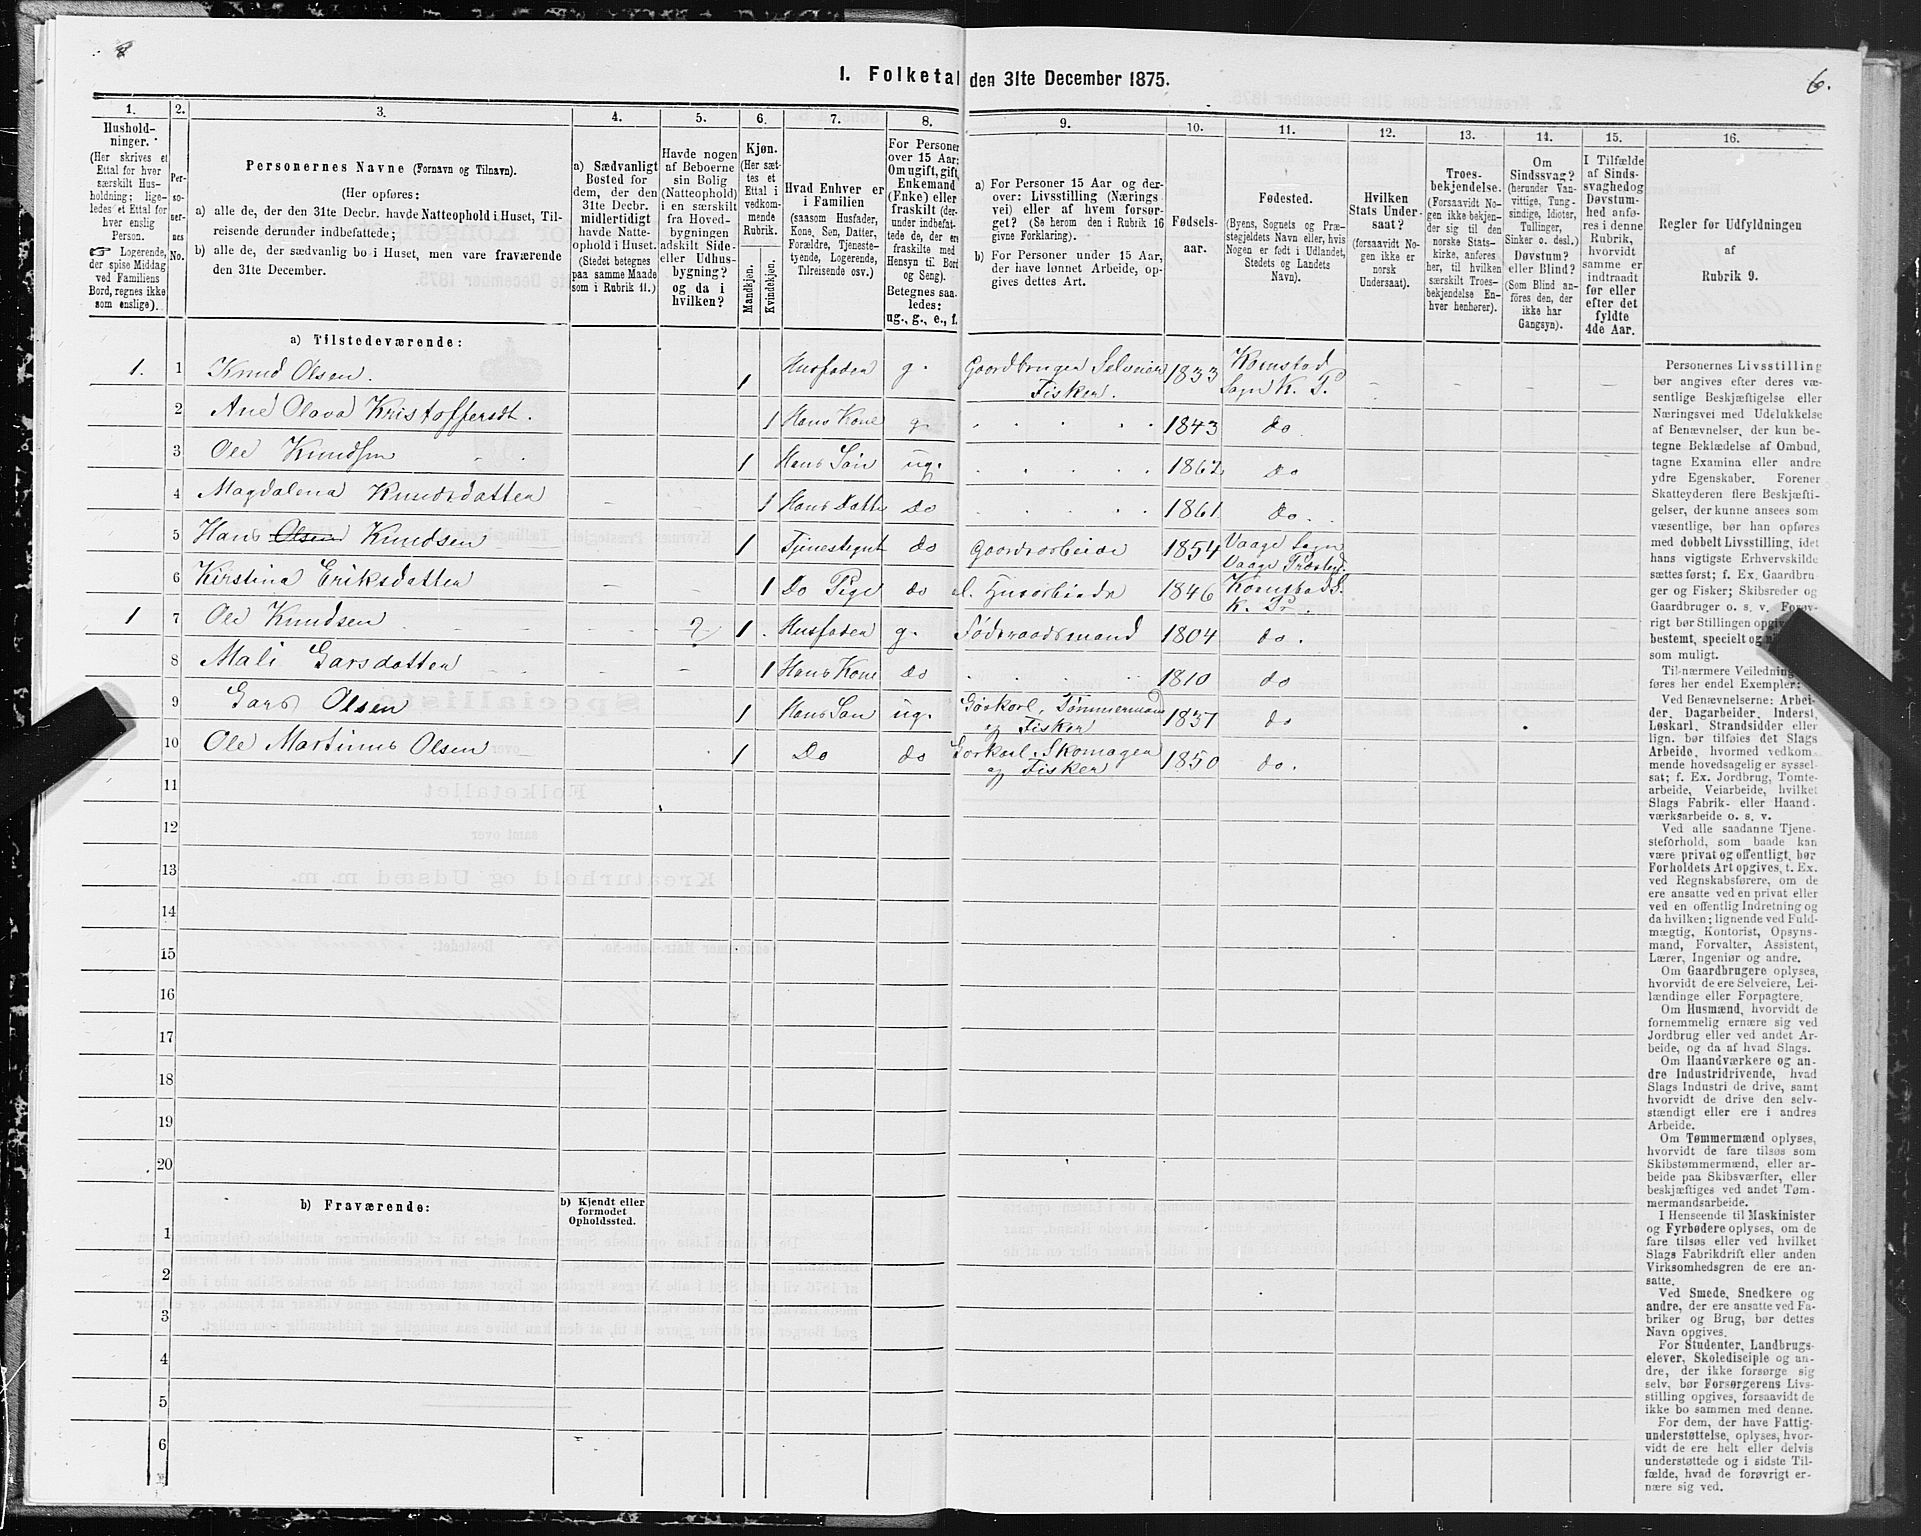 8
6.
I. Folketal den 31te December 1875.
1.
2.
3.
4.
5.
6.
7.
8.
9.
10.
11.
12.
13.
14.
15.
16.
Hushold-
ninger.
(Her skrives et
Ettal for hver
særskilt Hus-
holdning; lige-
ledes et Ettal for
hver enslig
Person.
☞ Logerende,
der spise Middag
ved Familiens
Bord, regnes ikke
som enslige).
Per-
so-
ner-
nes
No.
Personernes Navne (Fornavn og Tilnavn).
(Her opføres:
a) alle de, der den 31te Decbr. havde Natteophold i Huset, Til-
reisende derunder indbefattede;
b) alle de, der sædvanlig bo i Huset, men vare fraværende
den 31te December.
a) Sædvanligt
Bosted for
dem, der den
31te Decbr.
midlertidigt
havde Natte-
ophold i Huset.
(Stedet betegnes
paa samme Maade
som i Rubrik 11.)
Havde nogen
af Beboerne
sin Bolig
(Natteophold)
i en særskilt
fra Hoved-
bygningen
adskilt Side-
eller Udhus-
bygning?
og da i
hvilken?
Kjøn.
(Her sæt-
tes et
Ettal i
vedkom-
mende
Rubrik.
Mandkjøn.
Kvindekjøn.
Hvad Enhver er
i Familien
(saasom Husfader,
Kone, Søn, Datter,
Forældre, Tjeneste-
tyende, Logerende,
Tilreisende osv.)
For Personer
over 15 Aar:
Om ugift, gift,
Enkemand
(Enke) eller
fraskilt (der-
under indbefat-
tede de, der ere
fraskilte med
Hensyn til Bord
og Seng).
Betegnes saa-
ledes:
ug., g., e., f.
a) For Personer 15 Aar og der-
over: Livsstilling (Nærings
vei) eller af hvem forsør-
get? (Se herom den i Rubrik 16
givne Forklaring).
b) For Personer under 15 Aar,
der have lønnet Arbeide, op-
gives dettes Art.
Fødsels-
aar.
Fødested.
(Byens, Sognets og Præ-
stegjeldets Navn eller, hvis
Nogen er født i Udlandet,
Stedets og Landets
Navn).
Hvilken
Stats Under-
saat?
(forsaavidt No-
gen ikke er
norsk
Undersaat).
Troes-
bekjendelse.
(Forsaavidt No-
gen ikke bekjen-
der sig til den
norske Stats-
kirke, anføres
her, til hvilken
særskilt Troes-
bekjendelse En-
hver henhører).
Om
Sindssvag?
(herunder Van-
vittige, Tung-
sindige, Idioter,
Tullinger,
Sinker o. desl.)
Døvstum?
eller Blind?
(Som Blind an-
føres den, der
ikke har
Gangsyn).
I Tilfælde
af Sinds-
svaghed og
Døvstum-
hed anfø-
res i denne
Rubrik,
hvorvidt
samme er
indtraadt
før eller
efter det
fyldte
4de Aar.
Regler for Udfyldningen
af
Rubrik 9.
a) Tilstedeværende:
1. 1 Knud Olsen. 1 Husfader g. Gaardbruger Selveier Fisker. 1833 Kornstad Sogn K. P.
2 Ane Olava Kristoffersdt. 1 Hans Kone g. 1843 do.
3 Ole Knudsen 1 Hans Søn ug. 1862 Do
4 Magdalena Knudsdatter 1 Hans Datter Do 1861 do.
5 Hans Olsen Knudsen 1 Tjenestegut do Gaardsarbeide 1854 Vaage Sogn Vaage Præstegj.
6 Kirstina Eriksdatter 1 Do Pige do d. Husarbeide 1846 Kornstad S. K. Pr.
1 7 Ole Knudsen 2 1. Husfader g. Føderaadsmand 1804 do.
8 Mali Larsdatter 1 Hans Kone do 1810 do
9 Lars Olsen 1 Hans Søn ug. Løskarl, Tømmermand og Fisker 1837 do
10 Ole Martinus Olsen 1 Do do Løskarl, Skomager og Fisker 1850 do.
11
12
13
14
15
16
17
18
19
20
b) Fraværende:
b) Kjendt eller
formodet
Opholdssted.
1
2
3
4
5
6
Personernes Livsstilling
bør angives efter deres væ-
sentlige Beskjæftigelse eller
Næringsvei med Udelukkelse
af Benævnelser, der kun be-
tegne Beklædelse af Ombud,
tagne Examina eller andre
ydre Egenskaber. Forener
Skatteyderen flere Beskjæfti-
gelser, der kunne ansees som
væsentlige, bør han opføres
med dobbelt Livsstilling, idet
hans vigtigste Erhvervskilde
sættes først; f. Ex. Gaardbru-
ger og Fisker; Skibsreder og
Gaardbruger o. s. v. Forøv-
rigt bør Stillingen opgives
bestemt, specielt og
som muligt.
Til nærmere Veiledning
føres her endel Exempler:
Ved Benævnelserne: Arbei-
der, Dagarbeider, Inderst,
Løskarl, Strandsidder eller
lign. bør tilføies det Slags
Arbeide, hvormed vedkom-
mende hovedsagelig er syssel-
sat; f. Ex. Jordbrug, Tomte-
arbeide, Veiarbeide, hvilket
Slags Fabrik- eller Haand-
værksarbeide o. s. v.
Ved alle saadanne Tjene-
steforhold, som baade kan
være privat og offentligt, bør
Forholdets Art opgives, t. Ex.
ved Regnskabsførere, om de
ere ansatte ved en privat eller
ved en offentlig Indretning og
da hvilken; lignende ved Fuld-
mægtig, Kontorist, Opsyns-
mand, Forvalter, Assistent,
Lærer, Ingeniør og andre.
Om Gaardbrugere oplyses,
hvorvidt de ere Selveiere, Lei-
lændinge eller Forpagtere.
Om Husmænd, hvorvidt de
fornemmelig ernære sig ved
Jordbrug eller ved andet Ar-
beide, og da af hvad Slags.
Om Haandværkere og an-
dre Industridrivende, hvad
Slags Industri de drive, samt
hvorvidt de drive den selv-
stændigt eller ere i andres
Arbeide.
Om Tømmermænd oplyses,
hvorvidt de fare tilsøs som
Skibstømmermænd, eller ar-
beide paa Skibsværfter, eller
beskjæftiges ved andet Tøm-
mermandsarbeide.
I Henseende til Maskinister
og Fyrbødere oplyses, om de
fare tilsøs eller ved hvilket
Slags Fabrikdrift eller anden
Virksomhedsgren de ere an-
satte.
Ved Smede, Snedkere og
andre, der ere ansatte ved Fa-
briker og Brug, bør dettes
Navn opgives.
For Studenter, Landbrugs-
elever, Skoledisciple og an-
dre, der ikke forsørge sig
selv, bør Forsørgerens Livs-
stilling opgives, forsaavidt de
ikke bo sammen med denne.
For dem, der have Fattig-
understøttelse, oplyses, hvor-
vidt de ere helt eller delvis
understøttede og i sidste Til-
fælde, hvad de forøvrigt er-
nære sig ved.